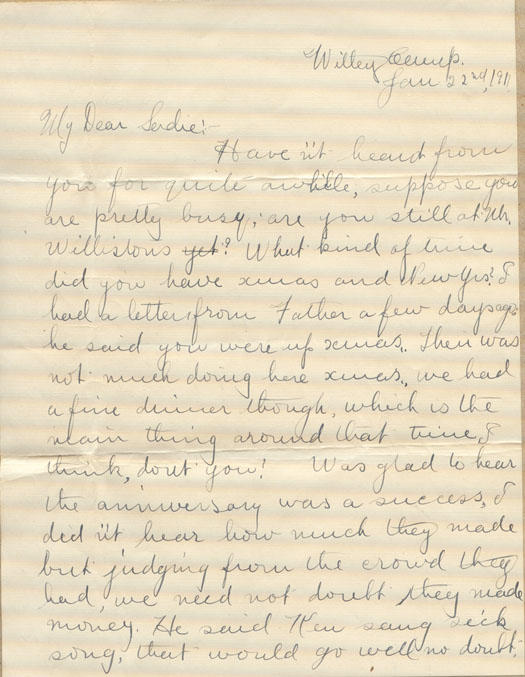 Willey Camp.
Jan 22nd, 1911
My Dear Sadie:-
Have n't heard from
you for quite awhile, suppose you
are pretty busy; are you still at Mr.
Willistons yet? What kind of time
did you have xmas and New Yrs? I
had a letter from Father a few days ago
he said you were up xmas. There was
not much doing here xmas, we had
a fine dinner though, which is the
main thing around that time, I
think, don't you? Was glad to hear
the anniversary was a success, I
did n't hear how much they made
but judging from the crowd they
had, we need not doubt they made
money. He said Ken sang
song, that would go well no doubt.